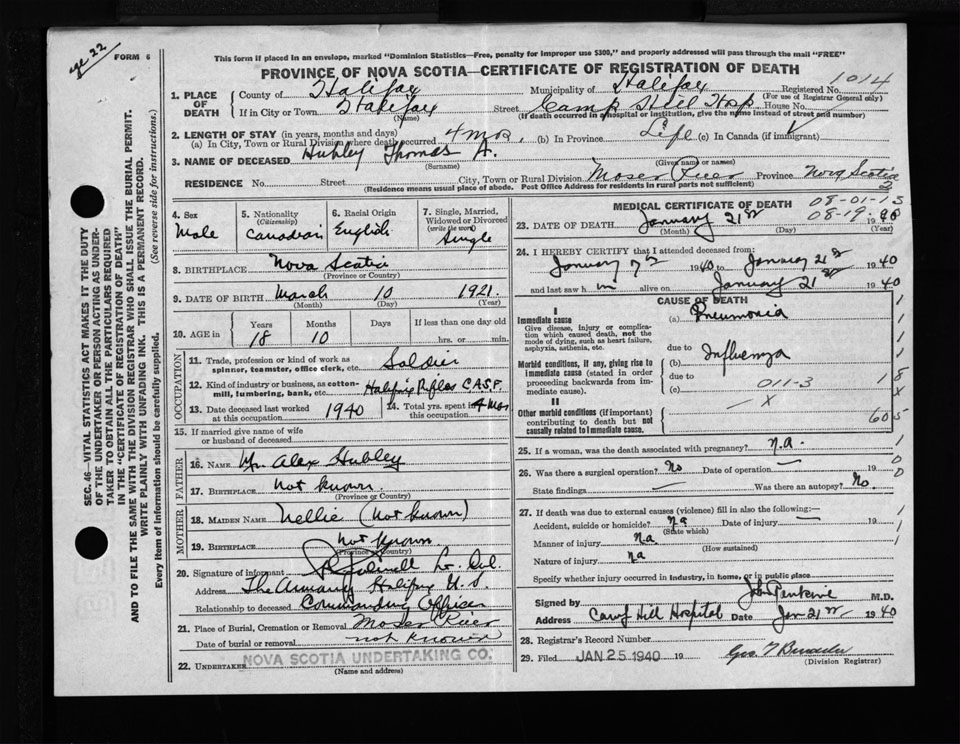 age 22
FORM 6
This form if placed in an envelope, marked "Dominion Statistics—Free, penalty for improper use $300," and properly addressed will pass through the mail "FREE"
PROVINCE OF NOVA SCOTIA—CERTIFICATE OF REGISTRATION OF DEATH
1. PLACE OF DEATH
County of Halifax
Municipality of Halifax
Registered No. 1014
(For use of Registrar General only)
If in City or Town Halifax
(Name)
Street Camp Hill Hosp House No.
(If death occurred in a hospital or institution, give the name instead of street and number)
2. LENGTH OF STAY (in years, months and days)
(a) In City, Town or Rural Division where death occurred 4 mos. (b) In Province Life (c) In Canada (if immigrant)
3. NAME OF DECEASED Hubley Thomas A.
(Surname) (Given name or names)
RESIDENCE No. Street City, Town or Rural Division Moser River Province Nova Scotia
(Residence means usual place of abode. Post Office Address for residents in rural parts not sufficient)
2
4. Sex
Male
5. Nationality
(Citizenship)
Canadian
6. Racial Origin
English
7. Single, Married, Widowed or Divorced
(write the word)
Single
8. BIRTHPLACE Nova Scotia
(Province or Country)
9. DATE OF BIRTH March 10 1921
(Month) (Day) (Year)
10. AGE in
Years 18
Months 10
Days
If less than one day old
hrs. or min.
OCCUPATION
11. Trade, profession or kind of work as spinner, teamster, office clerk, etc. Soldier
12. Kind of industry or business, as cotton-mill, lumbering, bank, etc. Halifax Rifles C.A.S.F.
13. Date deceased last worked at this occupation 1940
14. Total yrs. spent in 4 Mos
15. If married give name of wife or husband of deceased
FATHER
16. NAME Alex Hubley
17. BIRTHPLACE not known
(Province or Country)
MOTHER
18. MAIDEN NAME Nellie (not known)
19. BIRTHPLACE not known
(Province or Country)
20. Signature of informant Lt. Col.
Address The Armoury Halifax N.S.
Relationship to deceased Commanding Officer
21. Place of Burial, Cremation or Removal Moser River
Date of burial or removal not known
22. UNDERTAKER NOVA SCOTIA UNDERTAKING CO.
(Name and address)
MEDICAL CERTIFICATE OF DEATH
08-01-13
23. DATE OF DEATH January 21st 19
08-19.
(Month) (Day) (Year)
24. I HEREBY CERTIFY that I attended deceased from:
January 7 1940 to January 21st 1940
and last saw him alive on January 21st 1940
CAUSE OF DEATH
I
Immediate cause
Give disease, injury or complication which caused death, not the mode of dying, such as heart failure, asphyxia, asthenia, etc.
(a) Pneumonia
due to
Morbid conditions, if any, giving rise to immediate cause (stated in order proceeding backwards from immediate cause).
(b) Influenza
due to
(c) 011-3
II
Other morbid conditions (if important) contributing to death but not causally related to immediate cause.
X
605
25. If a woman, was the death associated with pregnancy? n.a
26. Was there a surgical operation? No Date of operation — 19
State findings — Was there an autopsy? No.
27. If death was due to external causes (violence) fill in also the following:—
Accident, suicide or homicide? na Date of injury — 19
(State which)
Manner of injury na.
(How sustained)
Nature of injury na
Specify whether injury occurred in industry, in home, or in public place
Signed by Perkins M.D.
Address Camp Hill Hospital Date Jan 21st 1940
28. Registrar's Record Number
29. Filed JAN 25 1940 19
(Division Registrar)
SEC. 46—VITAL STATISTICS ACT MAKES IT THE DUTY OF THE UNDERTAKER OR PERSON ACTING AS UNDERTAKER TO OBTAIN ALL THE PARTICULARS REQUIRED IN THE "CERTIFICATE OF REGISTRATION OF DEATH"
AND TO FILE THE SAME WITH THE DIVISION REGISTRAR WHO SHALL ISSUE THE BURIAL PERMIT.
WRITE PLAINLY WITH UNFADING INK. THIS IS A PERMANENT RECORD.
Every item of Information should be carefully supplied. (See reverse side for instructions.)